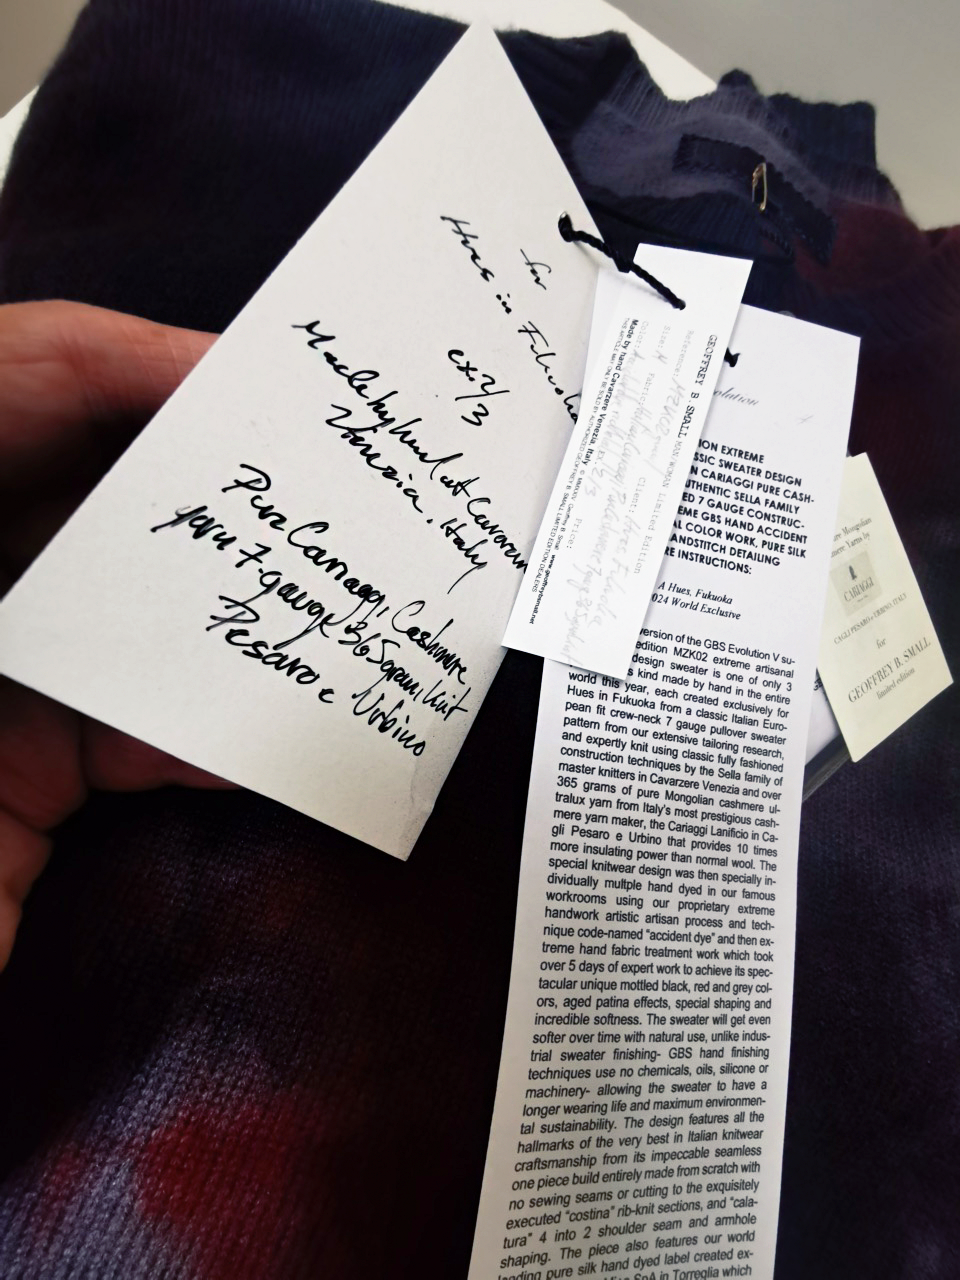 for
Hues in Fukuoka
ex. 2/3
Made by hand at Cavarzere
Venezia, Italy
Pure Cariaggi Cashmere
yarn 7 gauge 365 gram knit
Pesaro e Urbino
GEOFFREY B. SMALL MAN/WOMAN Limited Edition
Reference: Client:
Size: M Fabric:
Color:
Price:
Made by hand Cavarzere Venezia, Italy
THIS ARTICLE MAY ONLY BE SOLD BY AUTHORIZED GEOFFREY B. SMALL LIMITED EDITION DEALERS
www.geoffreybsmall.net
olution
ION EXTREME
SSIC SWEATER DESIGN
N CARIAGGI PURE CASH-
UTHENTIC SELLA FAMILY
ED 7 GAUGE CONSTRUC-
EME GBS HAND ACCIDENT
L COLOR WORK, PURE SILK
ANDSTITCH DETAILING
RE INSTRUCTIONS:
A Hues, Fukuoka
024 World Exclusive
version of the GBS Evolution V su-
edition MZK02 extreme artisanal
design sweater is one of only 3
s kind made by hand in the entire
world this year, each created exclusively for
Hues in Fukuoka from a classic Italian Euro-
pean fit crew-neck 7 gauge pullover sweater
pattern from our extensive tailoring research,
and expertly knit using classic fully fashioned
construction techniques by the Sella family of
master knitters in Cavarzere Venezia and over
365 grams of pure Mongolian cashmere ul-
tralux yarn from Italy's most prestigious cash-
mere yarn maker, the Cariaggi Lanificio in Ca-
gli Pesaro e Urbino that provides 10 times
more insulating power than normal wool. The
special knitwear design was then specially in-
dividually multple hand dyed in our famous
workrooms using our proprietary extreme
handwork artistic artisan process and tech-
nique code-named "accident dye" and then ex-
treme hand fabric treatment work which took
over 5 days of expert work to achieve its spec-
tacular unique mottled black, red and grey col-
ors, aged patina effects, special shaping and
incredible softness. The sweater will get even
softer over time with natural use, unlike indus-
trial sweater finishing- GBS hand finishing
techniques use no chemicals, oils, silicone or
machinery- allowing the sweater to have a
longer wearing life and maximum environmen-
tal sustainability. The design features all the
hallmarks of the very best in Italian knitwear
craftsmanship from its impeccable seamless
one piece build entirely made from scratch with
no sewing seams or cutting to the exquisitely
executed "costina" rib-knit sections, and "cala-
tura" 4 into 2 shoulder seam and armhole
shaping. The piece also features our world
leading pure silk hand dyed label created ex-
SpA in Torreglia which
re Mongolian
mere Yarns by
CARIAGGI
CAGLI PESARO e URBINO, ITALY
for
GEOFFREY B. SMALL
limited edition